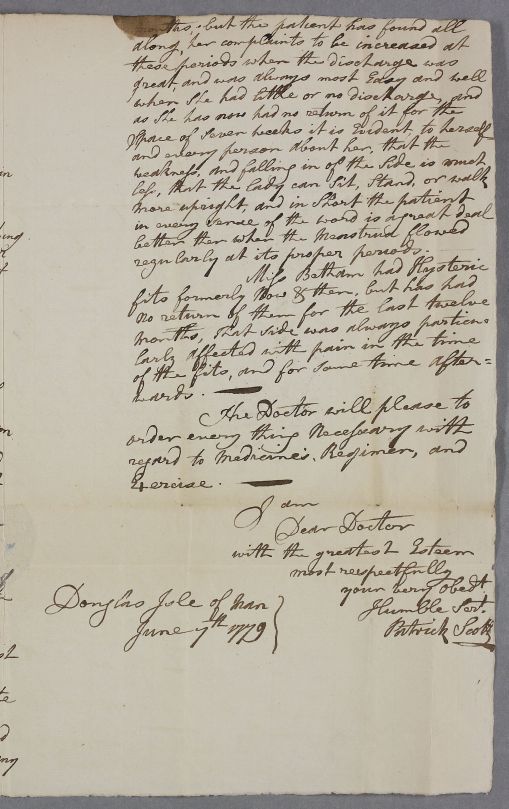 months, but the patient has found all
along, her complaints to be increased at
these periods when the discharge was
great, and was always most Easy and well
when She had little or no discharge, and
as She has now had no return of it for the
Space of Seven weeks it is Evident, to herself
and every person about her, that the
weakness, and falling in of the Side is much
less, that the Lady can Sit, Stand, or walk
more upright, and in Short the patient
in every sense of the word is a great deal
better then when the Menstrua flowed
regularly at its proper periods.
Miss Betham had Hysteric
fits formerly Now & then, but has had
No return of them for the last twelve
Months, That Side was always particu=
larly affected with pain in the time
of the fits, and for some time after=
wards.
The Doctor will please to
order every thing Necessary with
regard to Medicines, Regimen, and
Exercise.
I am
Dear Doctor
with the greatest Esteem
most respectfully
your very obedt
Humble Sert.
Patrick Scott
Douglas Isle of Man
June 7th 1779